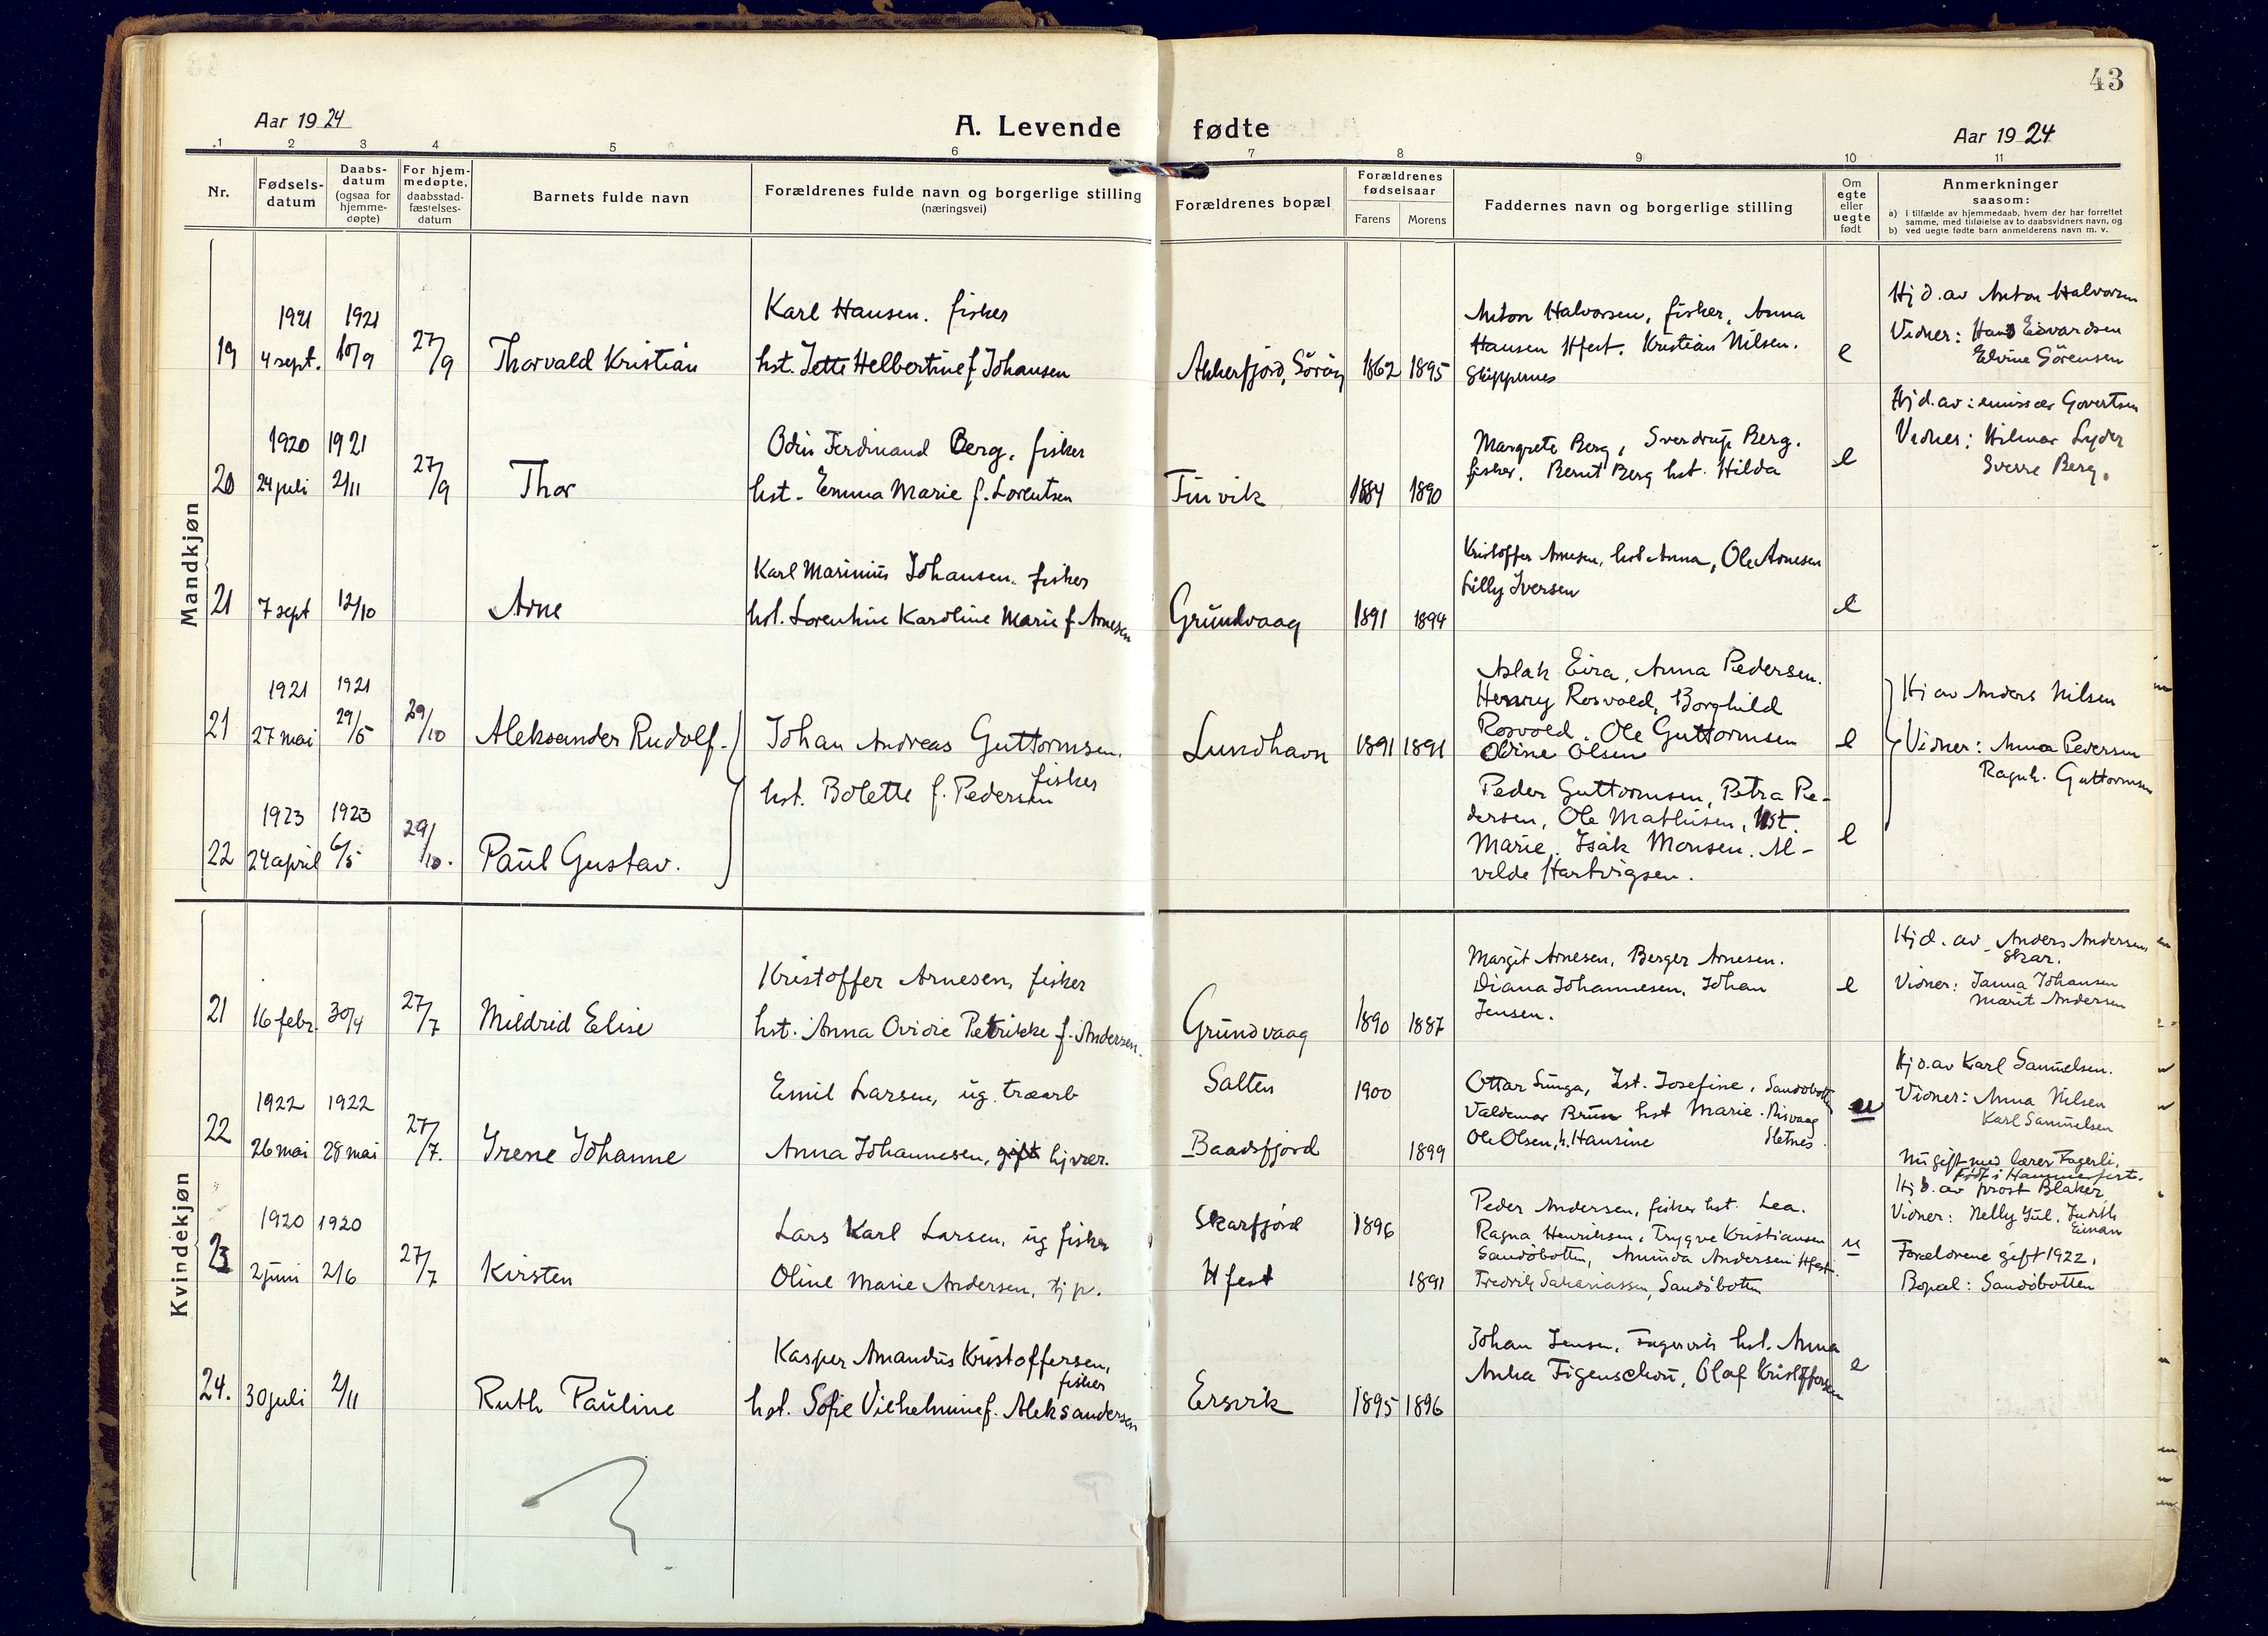 43
Aar 1924
A. Levende fødte
Aar 1924
1 2 3 4 5 6 7 8 9 10 11
Nr.
Fødsels-
datum
Daabs-
datum
(ogsaa for
hjemme-
døpte)
For hjem-
medøpte,
daabsstad-
fæstelses-
datum
Barnets fulde navn
Forældrenes fulde navn og borgerlige stilling
(næringsvei)
Forældrenes bopæl
Forældrenes
fødselsaar
Farens Morens
Faddernes navn og borgerlige stilling
Om
egte
eller
uegte
født
Anmerkninger
saasom:
a) i tilfælde av hjemmedaab, hvem der har forrettet
samme, med tilføielse av to daabsvidners navn, og
b) ved uegte fødte barn anmelderens navn m. v.
Mandkjøn
1921 1921
19 4 sept. 10/9 27/9 Thorvald Kristian
Karl Hansen. fisker
hst. Jette Helbertine f Johansen
Akkerfjord, Söröy 1862 1895
Anton Halvorsen, fisker, Anna
Hansen Hfest. Kristian Nilsen.
Skippernes
e
Hj d. av Anton Halvorsen
Vidner: Hans Edvardsen
Elvine Sörensen
1920 1921
20 24 juli 2/11 27/9 Thor
Odin Ferdinand Berg, fisker
hst. Emma Marie f. Lorentsen
Finvik 1884 1890
Margrete Berg, Sverdrup Berg.
fisker. Bernt Berg hst. Hilda
e
Hj d. av: emissær Govertsen
Vidner: Hilmar Lyder
Sverre Berg.
21 7 sept 12/10 Arne
Karl Marinius Johansen. fisker
hst. Lorentine Karoline Marie f Arnesen
Grundvaag 1891 1894
Kristoffer Arnesen, hst Anna, Ole Arnesen
Lilly Iversen
e
1921 1921
21 27 mai 29/5 29/10 Aleksander Rudolf.
Johan Andreas Guttormsen.
fisker
hst. Bolette f. Pedersen
Lundhavn 1891 1891
Aslak Eira, Anna Pedersen.
Henry Rosvold, Borghild
Rosvold. Ole Guttormsen
Odine Olsen
e
Hj av Anders Nilsen
Vidner: Anna Pedersen
Ragnh. Guttormsen
1923 1923
22 24 april 6/5 29/10. Paul Gustav.
Peder Guttormsen, Petra Pe-
dersen, Ole Mathisen, Hst.
Marie. Isak Monsen. Al-
vilde Hartvigsen.
e
Kvindekjøn
21 16 febr. 30/4 27/7 Mildrid Elise
Kristoffer Arnesen, fisker
hst. Anna Ovidie Petrikke f. Andersen.
Grundvaag 1890 1887
Margit Arnesen, Berger Arnesen.
Diana Johannesen, Johan
Jensen.
e
Hj d. av Anders Andersen
Skar.
Vidner: Janna Johansen
Marit Andersen
1922 1922
22 26 mai 28 mai 27/7. Irene Johanne
Emil Larsen, ug. træarb
Anna Johannesen, gift hjvær.
Salten 1900
Baadsfjord 1899
Ottar Sunga, Hst. Josefine, Sandöbotten
Valdemar Brun hst Marie. Risvaag
Ole Olsen, h. Hansine Sletnes.
u
Hj d. av Karl Samuelsen.
Vidner: Anna Nilsen
Karl Samuelsen
Nu gift med lærer Fagerli.
1920 1920
23 2 juni 2/6 27/7 Kirsten
Lars Karl Larsen, ug fisker
Oline Marie Andersen, tj p.
Skarfjord 1896
Hfest 1891
Peder Andersen, fisker hst. Lea.
Ragna Henriksen, Trygve Kristiansen
Sandöbotten, Aminda Andersen Hfest.
Fredrik Sakariassen, Sandöbotten
u
Født i Hammerfest.
Hj d. av prost Blaker
Vidner: Nelly Jul. Judith
Einan
Forældrene gift 1922.
Bopæl: Sandöbotten
24. 30 juli 2/11 Ruth Pauline
Kasper Amandus Kristoffersen,
fisker
hst. Sofie Vilhelmine f. Aleksandersen
Ersvik 1895 1896
Johan Jensen, Fagervik hst. Anna
Anka Figenschou, Olaf Kristoffersen
e